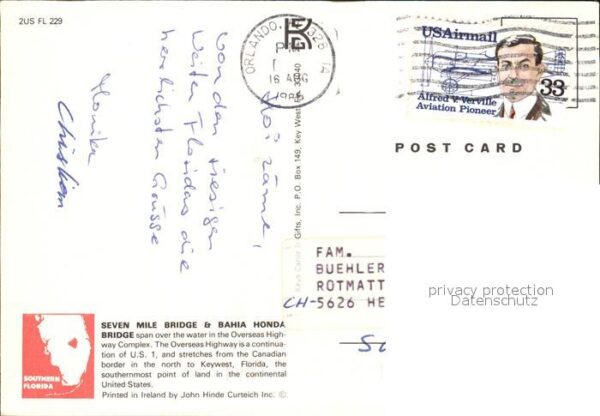 2US FL 229
ORLANDO, FL 328
16 AUG
USAirmail
33
Alfred V. Verville
Aviation Pioneer
POST CARD
von den riesigen
weiten Floridas die
herzlichsten Grüsse
Monika
Christian
Gifts, Inc. P.O. Box 149, Key West, FL 33040
FAM.
BUEHLER
ROTMATT
CH-5626 HE
privacy protection
Datenschutz
SEVEN MILE BRIDGE & BAHIA HONDA
BRIDGE span over the water in the Overseas High-
way Complex. The Overseas Highway is a continua-
tion of U.S. 1, and stretches from the Canadian
border in the north to Keywest, Florida, the
southernmost point of land in the continental
United States.
Printed in Ireland by John Hinde Curteich Inc. ©
SOUTHERN
FLORIDA